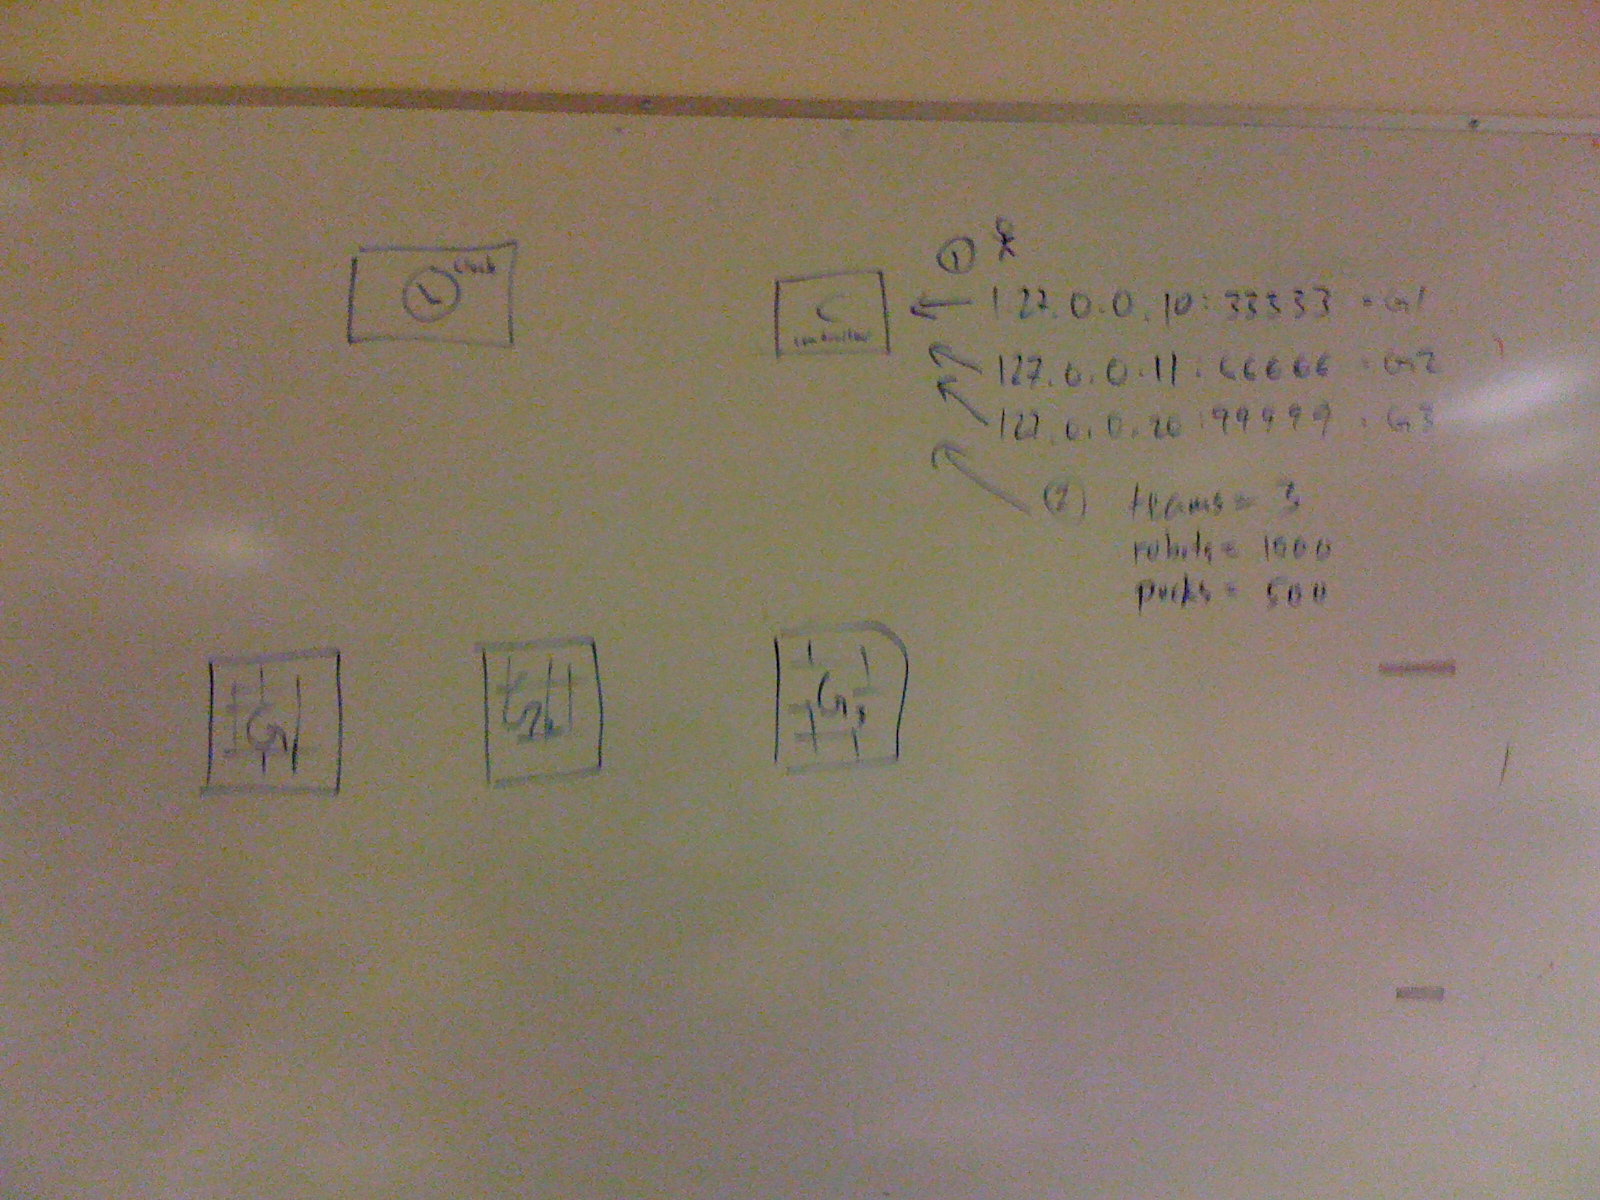 clock
C
controller
① 
127.0.0.10:33333 = G1
127.0.0.11:66666 = G2
127.0.0.20:99999 = G3
② teams = 3
robots = 1000
pucks = 500
G1
G2
G3